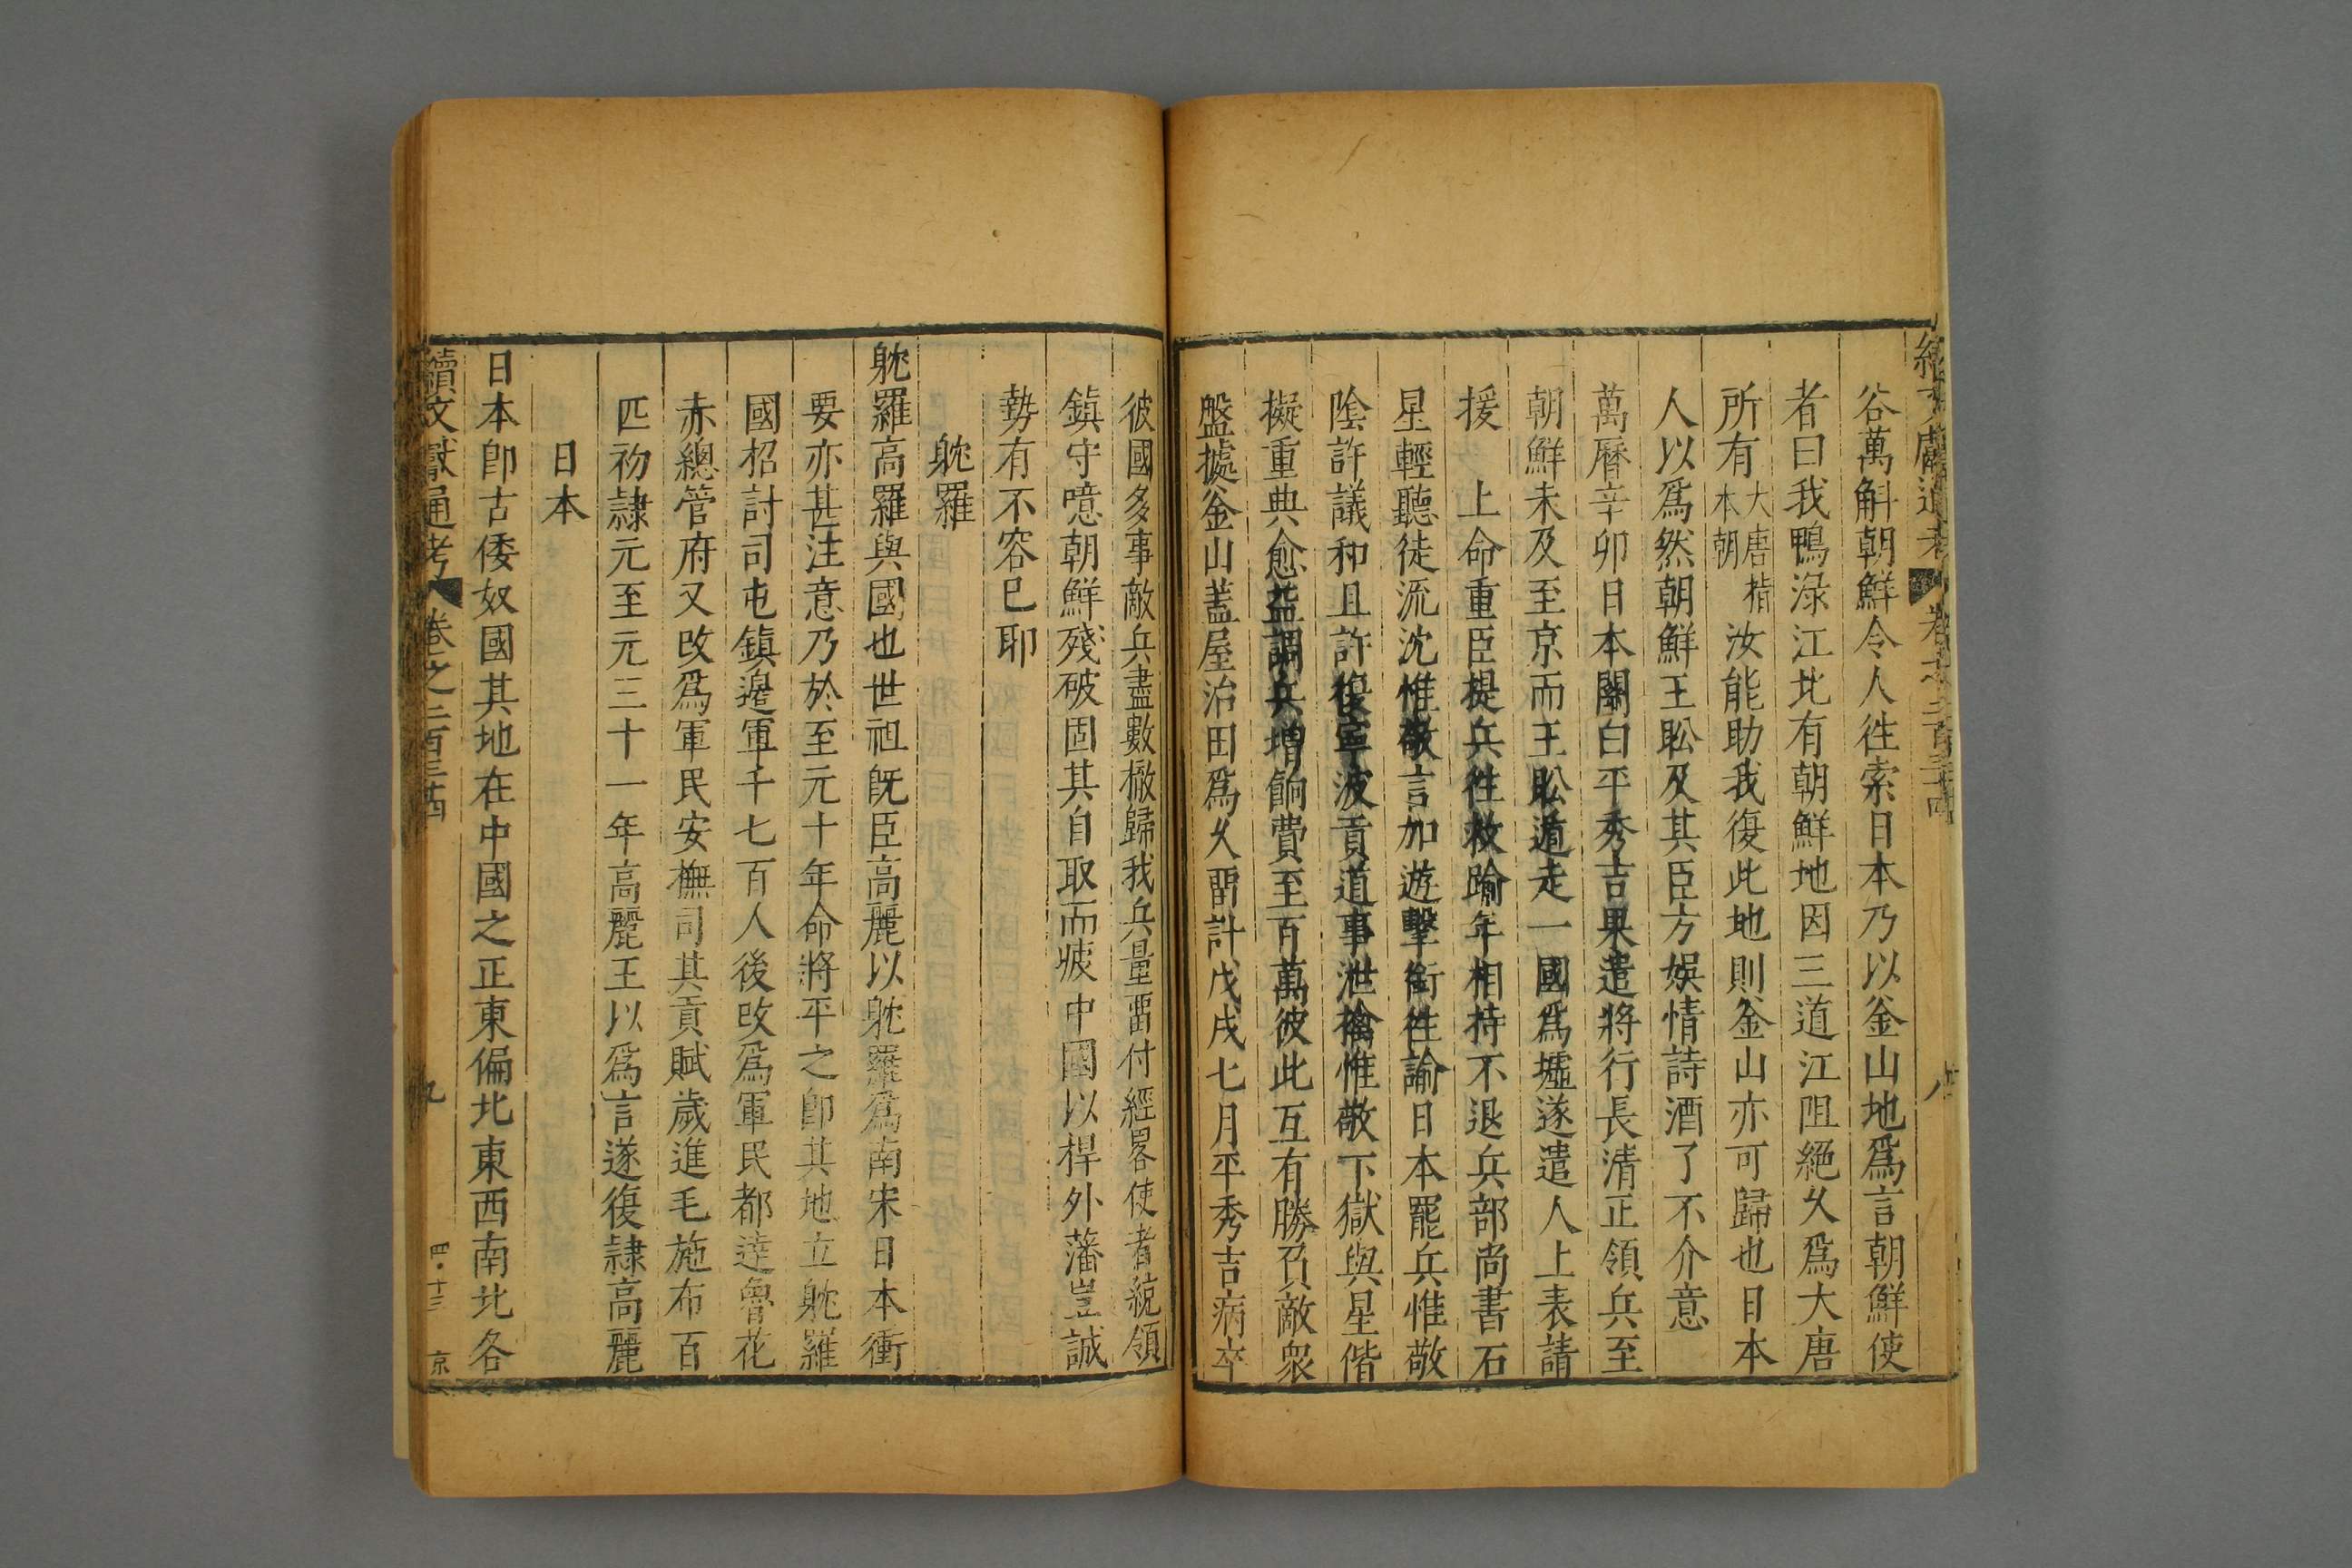 續文獻通考 卷之二百三十四 八
谷萬斛朝鮮令人徃索日本乃以釜山地爲言朝鮮使
者曰我鴨渌江北有朝鮮地因三道江阻絕乆爲大唐
所有大唐指本朝汝能助我復此地則釜山亦可歸也日本
人以爲然朝鮮王昖及其臣方娛情詩酒了不介意
萬曆辛卯日本關白平秀吉果遣將行長清正領兵至
朝鮮未及至京而王昖遁走一國爲墟遂遣人上表請
援 上命重臣提兵徃救踰年相持不退兵部尚書石
星輕聽徒流沈惟敬言加遊擊銜徃諭日本罷兵惟敬
陰許議和且許復寧波貢道事泄擒惟敬下獄與星偕
擬重典愈益調兵增餉費至百萬彼此互有勝負敵衆
盤據釜山蓋屋治田爲乆畱計戊戌七月平秀吉病卒
彼國多事敵兵盡數撤歸我兵量畱付經畧使者統領
鎮守噫朝鮮殘破固其自取而疲中國以捍外藩豈誠
勢有不容已耶
躭羅
躭羅高羅與國也世祖旣臣高麗以躭羅爲南宋日本衝
要亦甚注意乃於至元十年命將平之卽其地立躭羅
國招討司屯鎮邊軍千七百人後改爲軍民都逹魯花
赤總管府又改爲軍民安撫司其貢賦歲進毛施布百
匹初隷元至元三十一年高麗王以爲言遂復隷高麗
日本
日本卽古倭奴國其地在中國之正東偏北東西南北各
續文獻通考 卷之二百三十四 九 四·十三 京